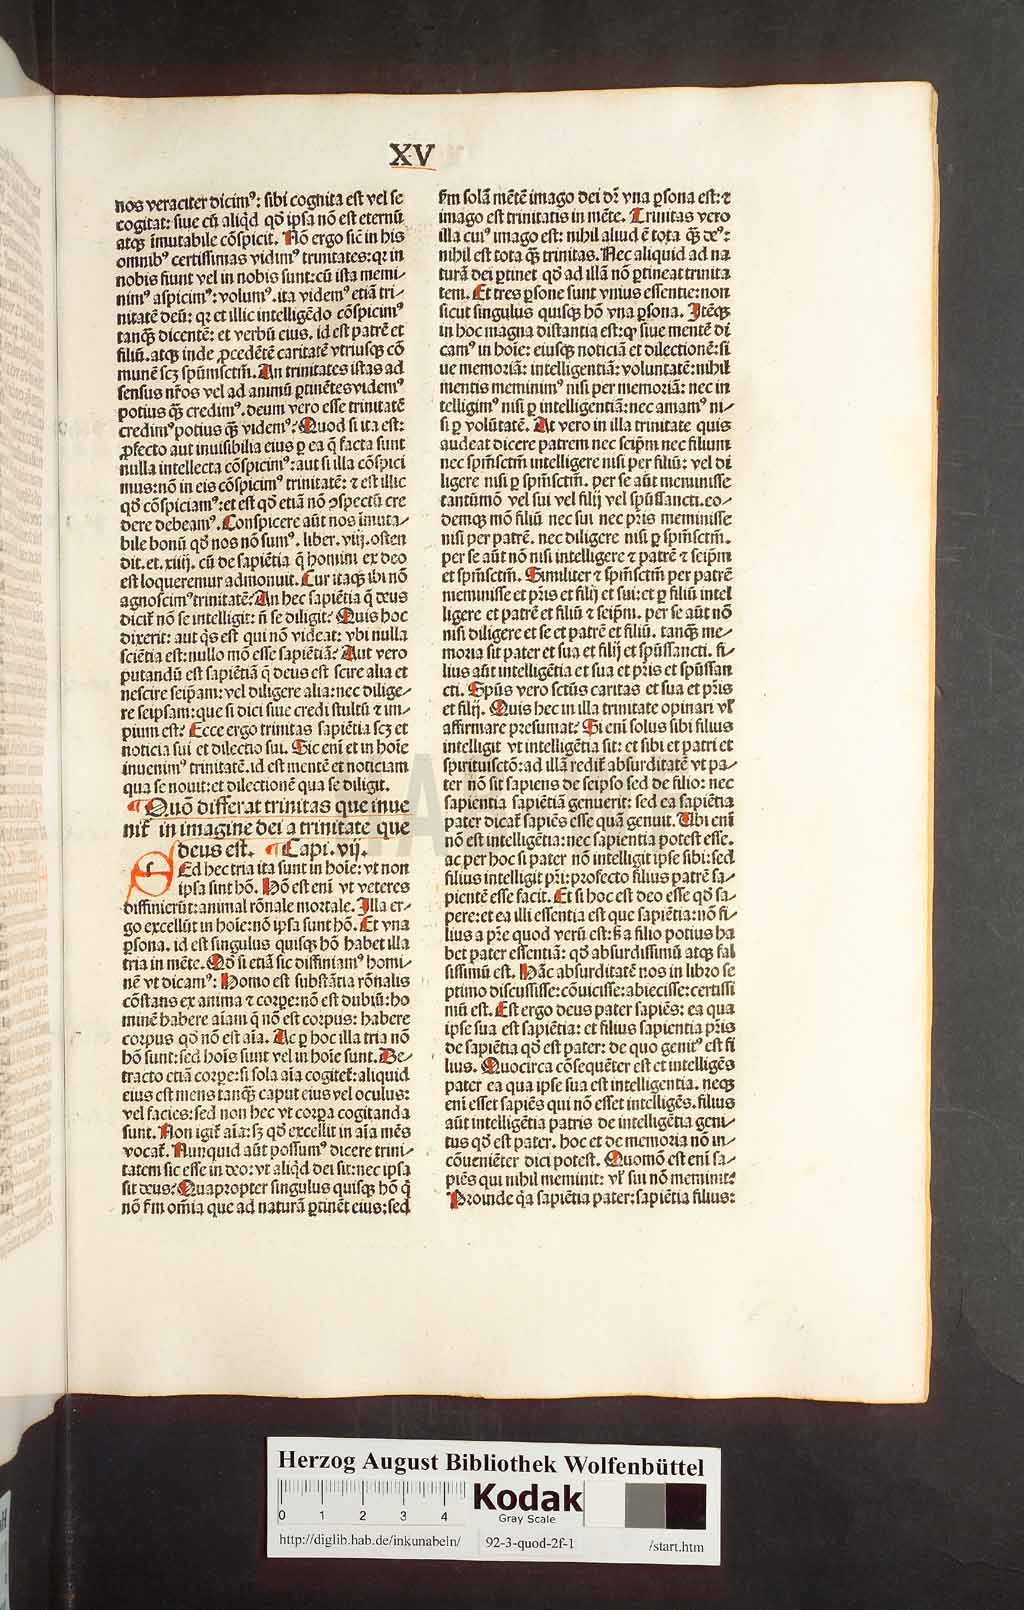 XV
nos veraciter dicimꝰ: sibi cognita est vel se
cogitat: siue cū aliqd qō ipsa nō est eternū
atqꝫ īmutabile cōspicit. Nō ergo sic̄ in his
omnibꝰ certissimas vidimꝰ trinitates: qꝛ in
nobis fiunt vel in nobis sunt: cū ista memi⸗
nimꝰ aspicimꝰ: volumꝰ. ita videmꝰ etiā tri⸗
nitatē deū: qꝛ et illic intelligēdo cōspicimꝰ
tanqꝫ dicentē: et verbū eius. id est patrē et
filiū. atqꝫ inde ꝓcedētē caritatē vtriusqꝫ cō
munē scꝫ spūmsctm̄. An trinitates istas ad
sensus nr̄os vel ad animū ꝑtinētes videmꝰ
potius qꝫ credimꝰ. deum vero esse trinitatē
credimꝰ potius qꝫ videmꝰ? Quod si ita est:
ꝓfecto aut inuisibilia eius ꝑ ea q̄ facta sunt
nulla intellecta cōspicimꝰ: aut si illa cōspici
mus: nō in eis cōspicimꝰ trinitatē: ⁊ est illic
qō cōspiciamꝰ: et est qō etiā nō ꝯspectū cre
dere debeamꝰ. Conspicere aūt nos īmuta⸗
bile bonū qō nos nō sumꝰ. liber. viij. osten
dit. et. xiiij. cū de sapiētia q̄ homini ex deo
est loqueremur admonuit. Cur itaqꝫ ibi nō
agnoscimꝰ trinitatē? An hec sapiētia q̄ deus
dicit̄ nō se intelligit: ñ se diligit? Quis hoc
dixerit: aut q̇s est qui nō videat: vbi nulla
sciētia est: nullo mō esse sapiētiā? Aut vero
putandū est sapiētiā q̄ deus est scire alia et
nescire seip̄am: vel diligere alia: nec dilige⸗
re seipsam: que si dici siue credi stultū ⁊ im⸗
pium est? Ecce ergo trinitas sapiētia scꝫ et
noticia sui et dilectio sui. Sic eni et in hoīe
inuenimꝰ trinitatē. id est mentē et noticiam
qua se nouit: et dilectionē qua se diligit.
¶ Quō differat trinitas que inue
nit̄ in imagine dei a trinitate que
deus est. ¶ Capi. vij.
SEd hec tria ita sunt in hoīe: vt non
ipsa sint hō. Hō est eni vt veteres
diffinierūt: animal rōnale mortale. Illa er⸗
go excellūt in hoīe: nō ipsa sunt hō. Et vna
ꝑsona. id est singulus quisqꝫ hō habet illa
tria in mēte. Qō si etiā sic diffiniamꝰ homi⸗
nē vt dicamꝰ: Homo est substātia rōnalis
cōstans ex anima ⁊ corpe: nō est dubiū: ho
minē habere aīam q̄ nō est corpus: habere
corpus qō nō est aīa. Ac ꝑ hoc illa tria nō
hō sunt: sed hoīs sunt vel in hoīe sunt. De⸗
tracto etiā corpe: si sola aīa cogitet̄: aliquid
eius est mens tanqꝫ caput eius vel oculus:
vel facies: sed non hec vt corpa cogitanda
sunt. Non igit̄ aīa: sꝫ qō excellit in aīa mēs
vocat̄. Nunquid aūt possumꝰ dicere trini⸗
tatem sic esse in deo: vt aliqd dei sit: nec ipsa
sit deus? Quapropter singulus quisqꝫ hō q̇
nō fm̄ omīa que ad naturā ꝑtinēt eius: sed
fm̄ solā mētē imago dei dr̄ vna ꝑsona est: ⁊
imago est trinitatis in mēte. Trinitas vero
illa cuiꝰ imago est: nihil aliud ē tota qꝫ deꝰ:
nihil est tota qꝫ trinitas. Nec aliquid ad na
turā dei ꝑtinet qō ad illā nō ꝑtineat trinita
tem. Et tres ꝑsone sunt vnius essentie: non
sicut singulus quisqꝫ hō vna ꝑsona. Itēqꝫ
in hoc magna distantia est: ꝙ siue mentē di
camꝰ in hoīe: eiusqꝫ noticiā et dilectionē: si
ue memoriā: intelligentiā: voluntatē: nihil
mentis meminimꝰ nisi per memoriā: nec in
telligimꝰ nisi ꝑ intelligentiā: nec amamꝰ ni⸗
si ꝑ volūtatē. At vero in illa trinitate quis
audeat dicere patrem nec seip̄m nec filium
nec spm̄sctm̄ intelligere nisi per filiū: vel di
ligere nisi ꝑ spm̄sctm̄. per se aūt meminisse
tantūmō vel sui vel filij vel spūssancti. eo⸗
demqꝫ mō filiū nec sui nec pr̄is meminisse
nisi per patrē. nec diligere nisi ꝑ spm̄sctm̄.
per se aūt nō nisi intelligere ⁊ patrē ⁊ seip̄m
et spm̄sctm̄. Similiter ⁊ spm̄sctm̄ per patrē
meminisse et pr̄is et filij et sui: et ꝑ filiū intel
ligere et patrē et filiū ⁊ seip̄m. per se aūt nō
nisi diligere et se et patrē et filiū. tanqꝫ me⸗
moria sit pater et sua et filij et spūssancti. fi⸗
lius aūt intelligētia et sua et pr̄is et spūssan
cti. Spūs vero sctūs caritas et sua et pr̄is
et filij. Quis hec in illa trinitate opinari vl̄
affirmare presumat? Si eni solus sibi filius
intelligit vt intelligētia sit: et sibi et patri et
spirituisctō: ad illā redit̄ absurditatē vt pa⸗
ter nō sit sapiens de seipso sed de filio: nec
sapientia sapiētiā genuerit: sed ea sapiētia
pater dicat̄ sapiēs esse quā genuit. Ubi eni
nō est intelligētia: nec sapientia potest esse.
ac per hoc si pater nō intelligit ipse sibi: sed
filius intelligit pr̄i: profecto filius patrē sa⸗
pientē esse facit. Et si hoc est deo esse qō sa⸗
pere: et ea illi essentia est que sapiētia: nō fi⸗
lius a pr̄e quod verū est: s̄ a filio potius ha
bet pater essentiā: qō absurdissimū atqꝫ fal
sissimū est. Hāc absurditatē nos in libro se
ptimo discussisse: cōuicisse: abiecisse: certissi
mū est. Est ergo deus pater sapiēs: ea qua
ipse sua est sapiētia: et filius sapientia pr̄is
de sapiētia qō est pater: de quo genitꝰ est fi
lius. Quocirca cōsequēter est et intelligēs
pater ea qua ipse sua est intelligentia. neqꝫ
eni esset sapiēs qui nō esset intelligēs. filius
aūt intelligētia patris de intelligētia geni⸗
tus qō est pater. hoc et de memoria nō in⸗
cōueniēter dici potest. Quomō est eni sa⸗
piēs qui nihil meminit: vl̄ sui nō meminit?
Proinde q̇a sapiētia pater: sapiētia filius:
Herzog August Bibliothek Wolfenbüttel
0 1 2 3 4
Kodak
Gray Scale
http://diglib.hab.de/inkunabeln/ 92-3-quod-2f-1 /start.htm